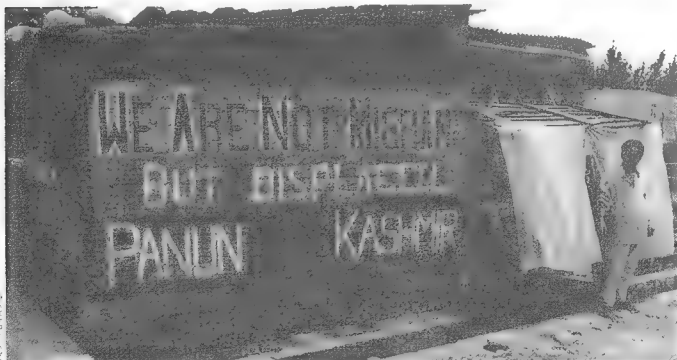 WE ARE NOT
BUT DISPLACED
PANUN KASHMIR